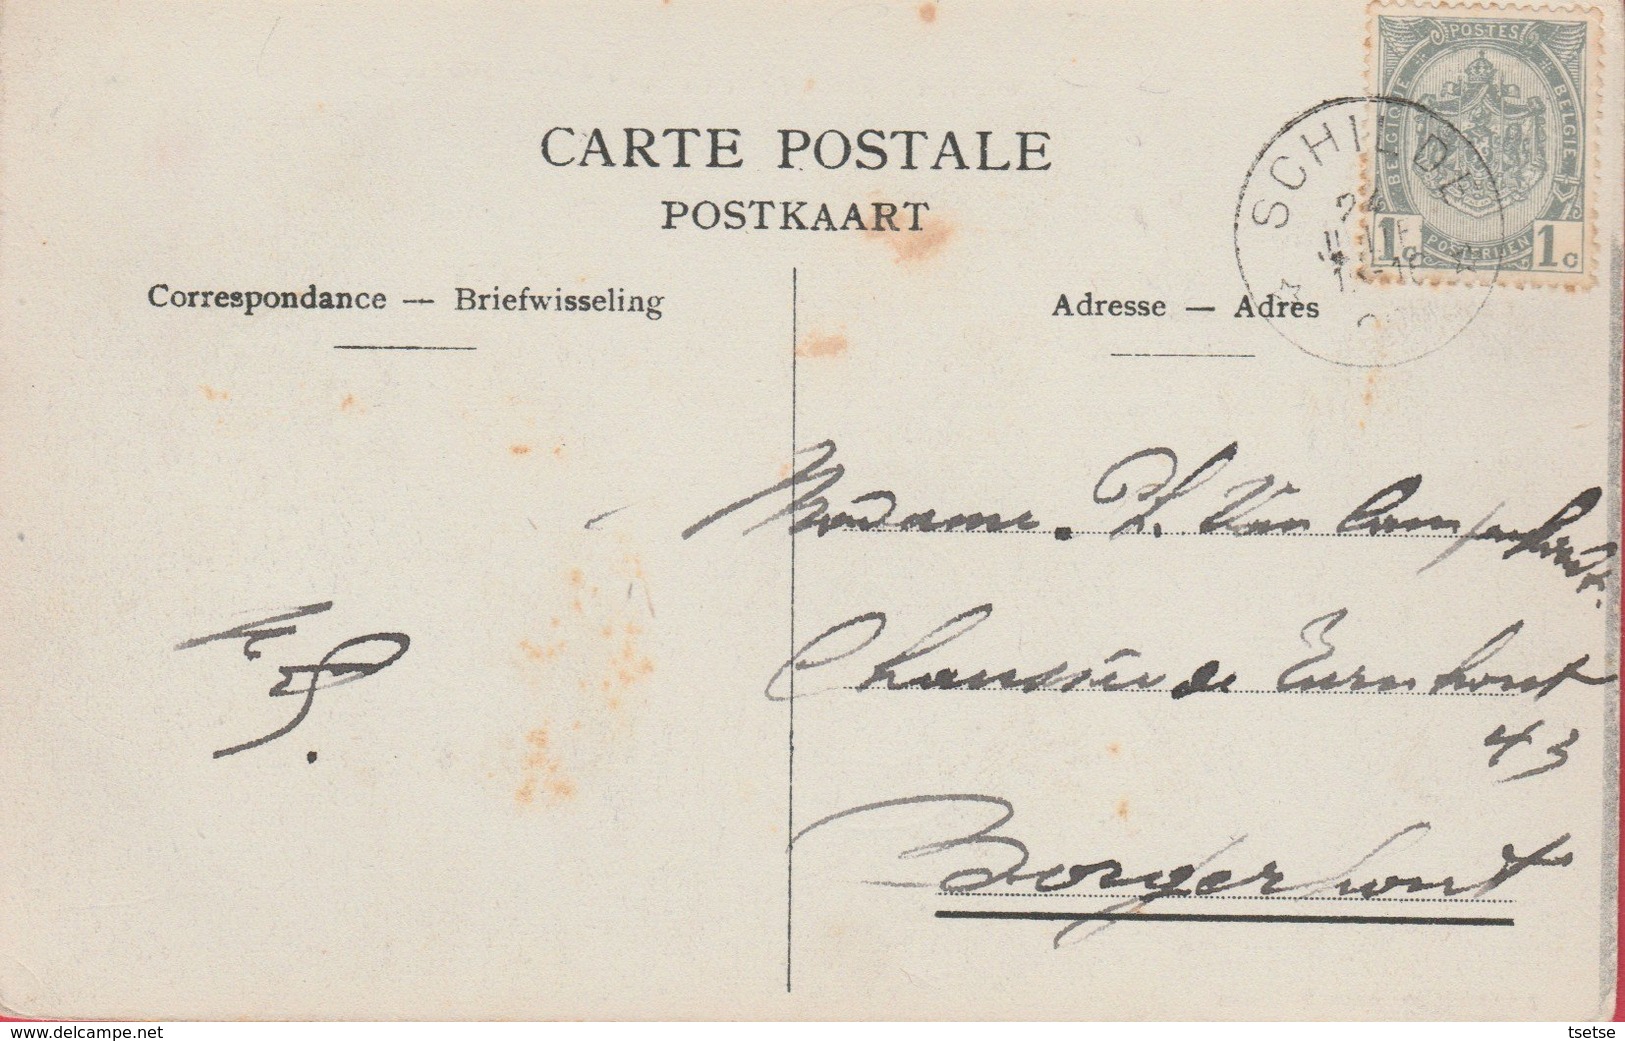 POSTES
BELGIQUE
BELGIE
1c
POSTERIJEN
1c
SCHILDE
24
CARTE POSTALE
POSTKAART
Correspondance — Briefwisseling
Adresse — Adres
Madame. Ph. Van Campenhoudt.
Chaussée de Turnhout
43
Borgerhout
www.delcampe.net
tsetse